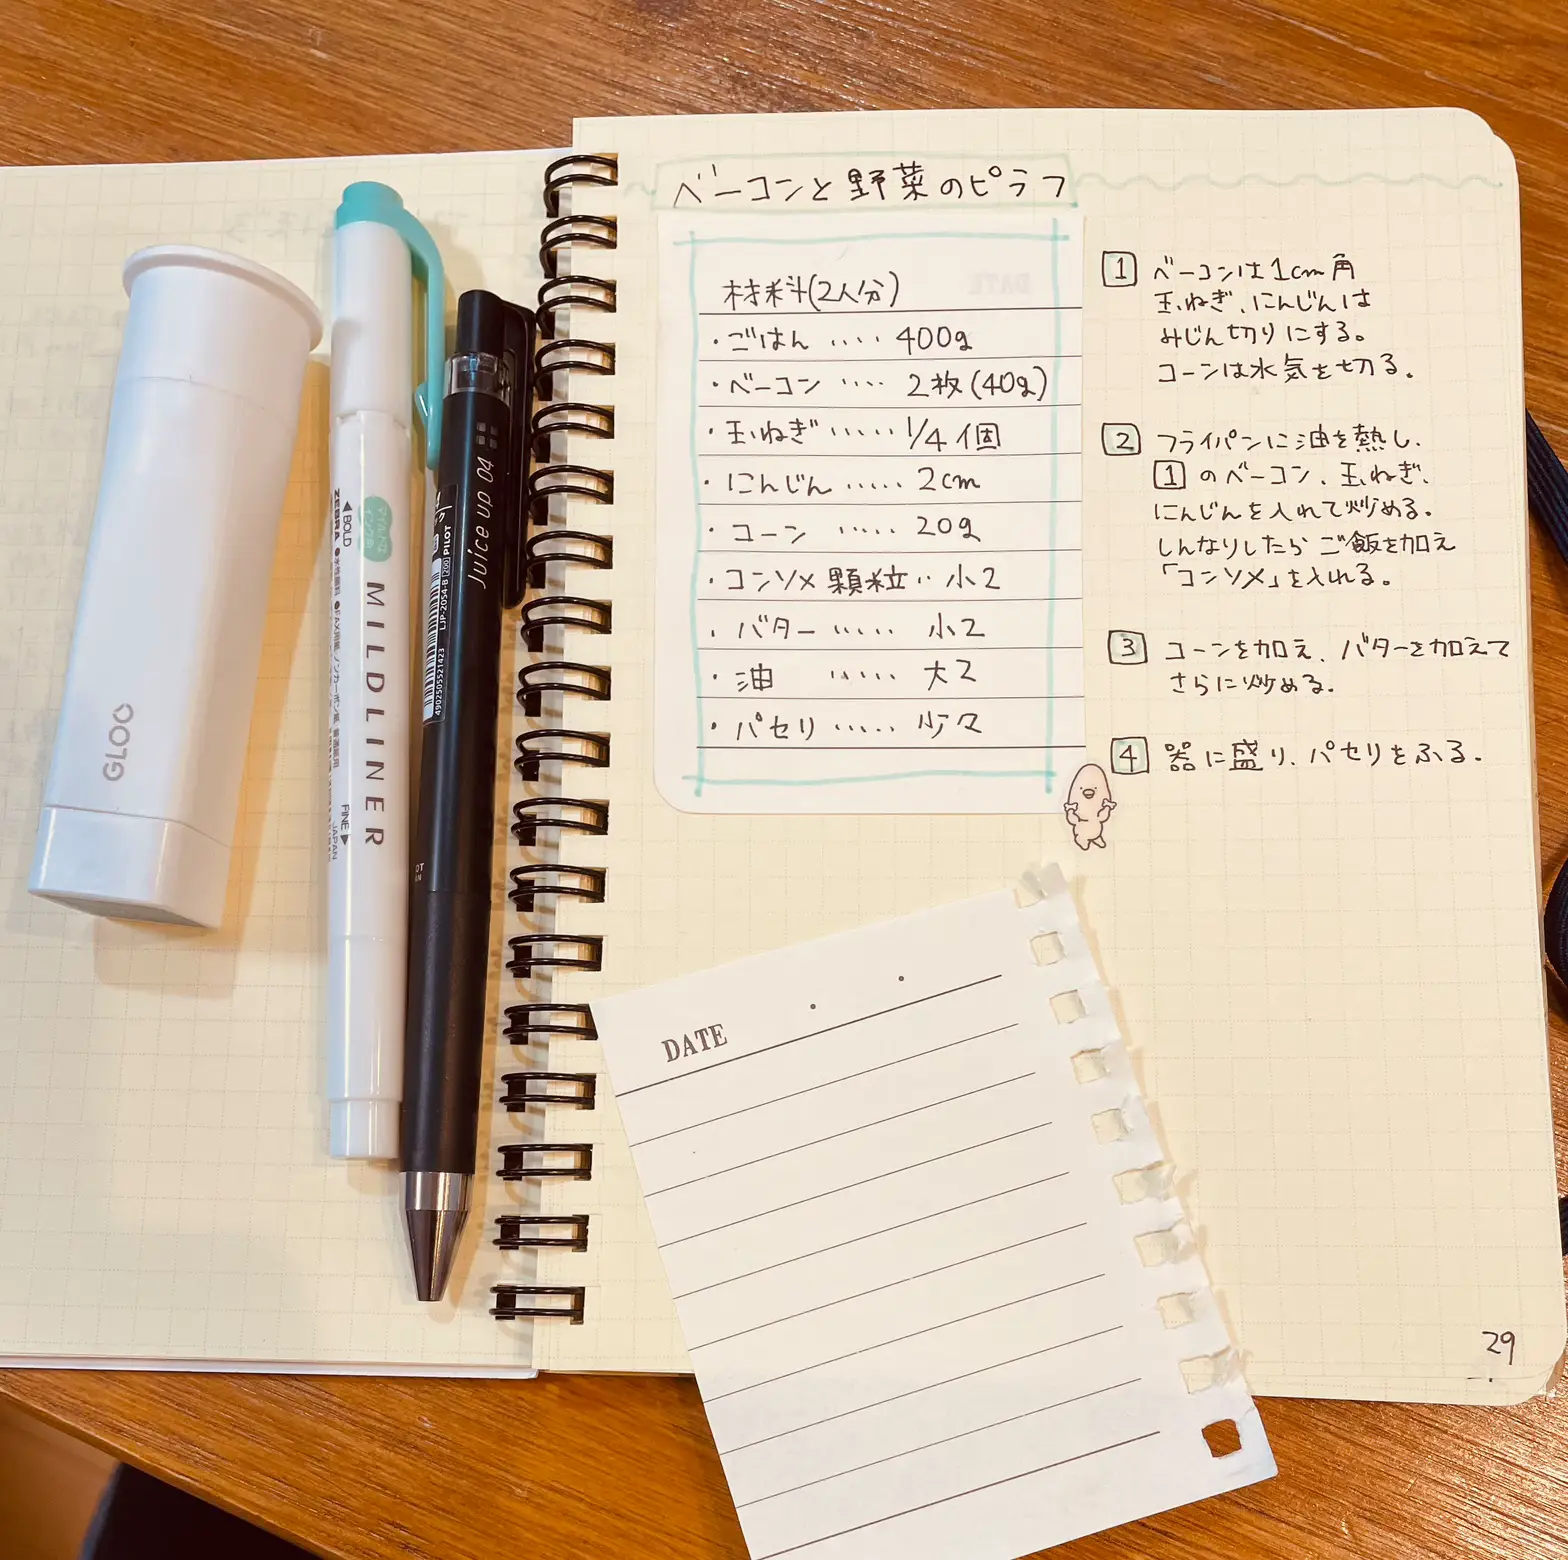 ベーコンと野菜のピラフ
材料(2人分)
・ごはん ‥‥ 400g
・ベーコン ‥‥ 2枚(40g)
・玉ねぎ ‥‥‥ 1/4個
・にんじん ‥‥‥ 2cm
・コーン ‥‥‥ 20g
・コンソメ顆粒‥小2
・バター ‥‥‥ 小2
・油 ‥‥‥ 大2
・パセリ ‥‥‥ 少々
1 ベーコンは1cm角
玉ねぎ、にんじんは
みじん切りにする。
コーンは水気を切る。
2 フライパンに油を熱し、
1のベーコン、玉ねぎ、
にんじんを入れて炒める。
しんなりしたらご飯を加え
「コンソメ」を入れる。
3 コーンを加え、バターを加えて
さらに炒める。
4 器に盛り、パセリをふる。
29
DATE
GLOO
MILDLINER
◀BOLD
ZEBRA
FINE▶
JAPAN
Juice up 04
LJP-20S4-B [200] PILOT
4902505521423